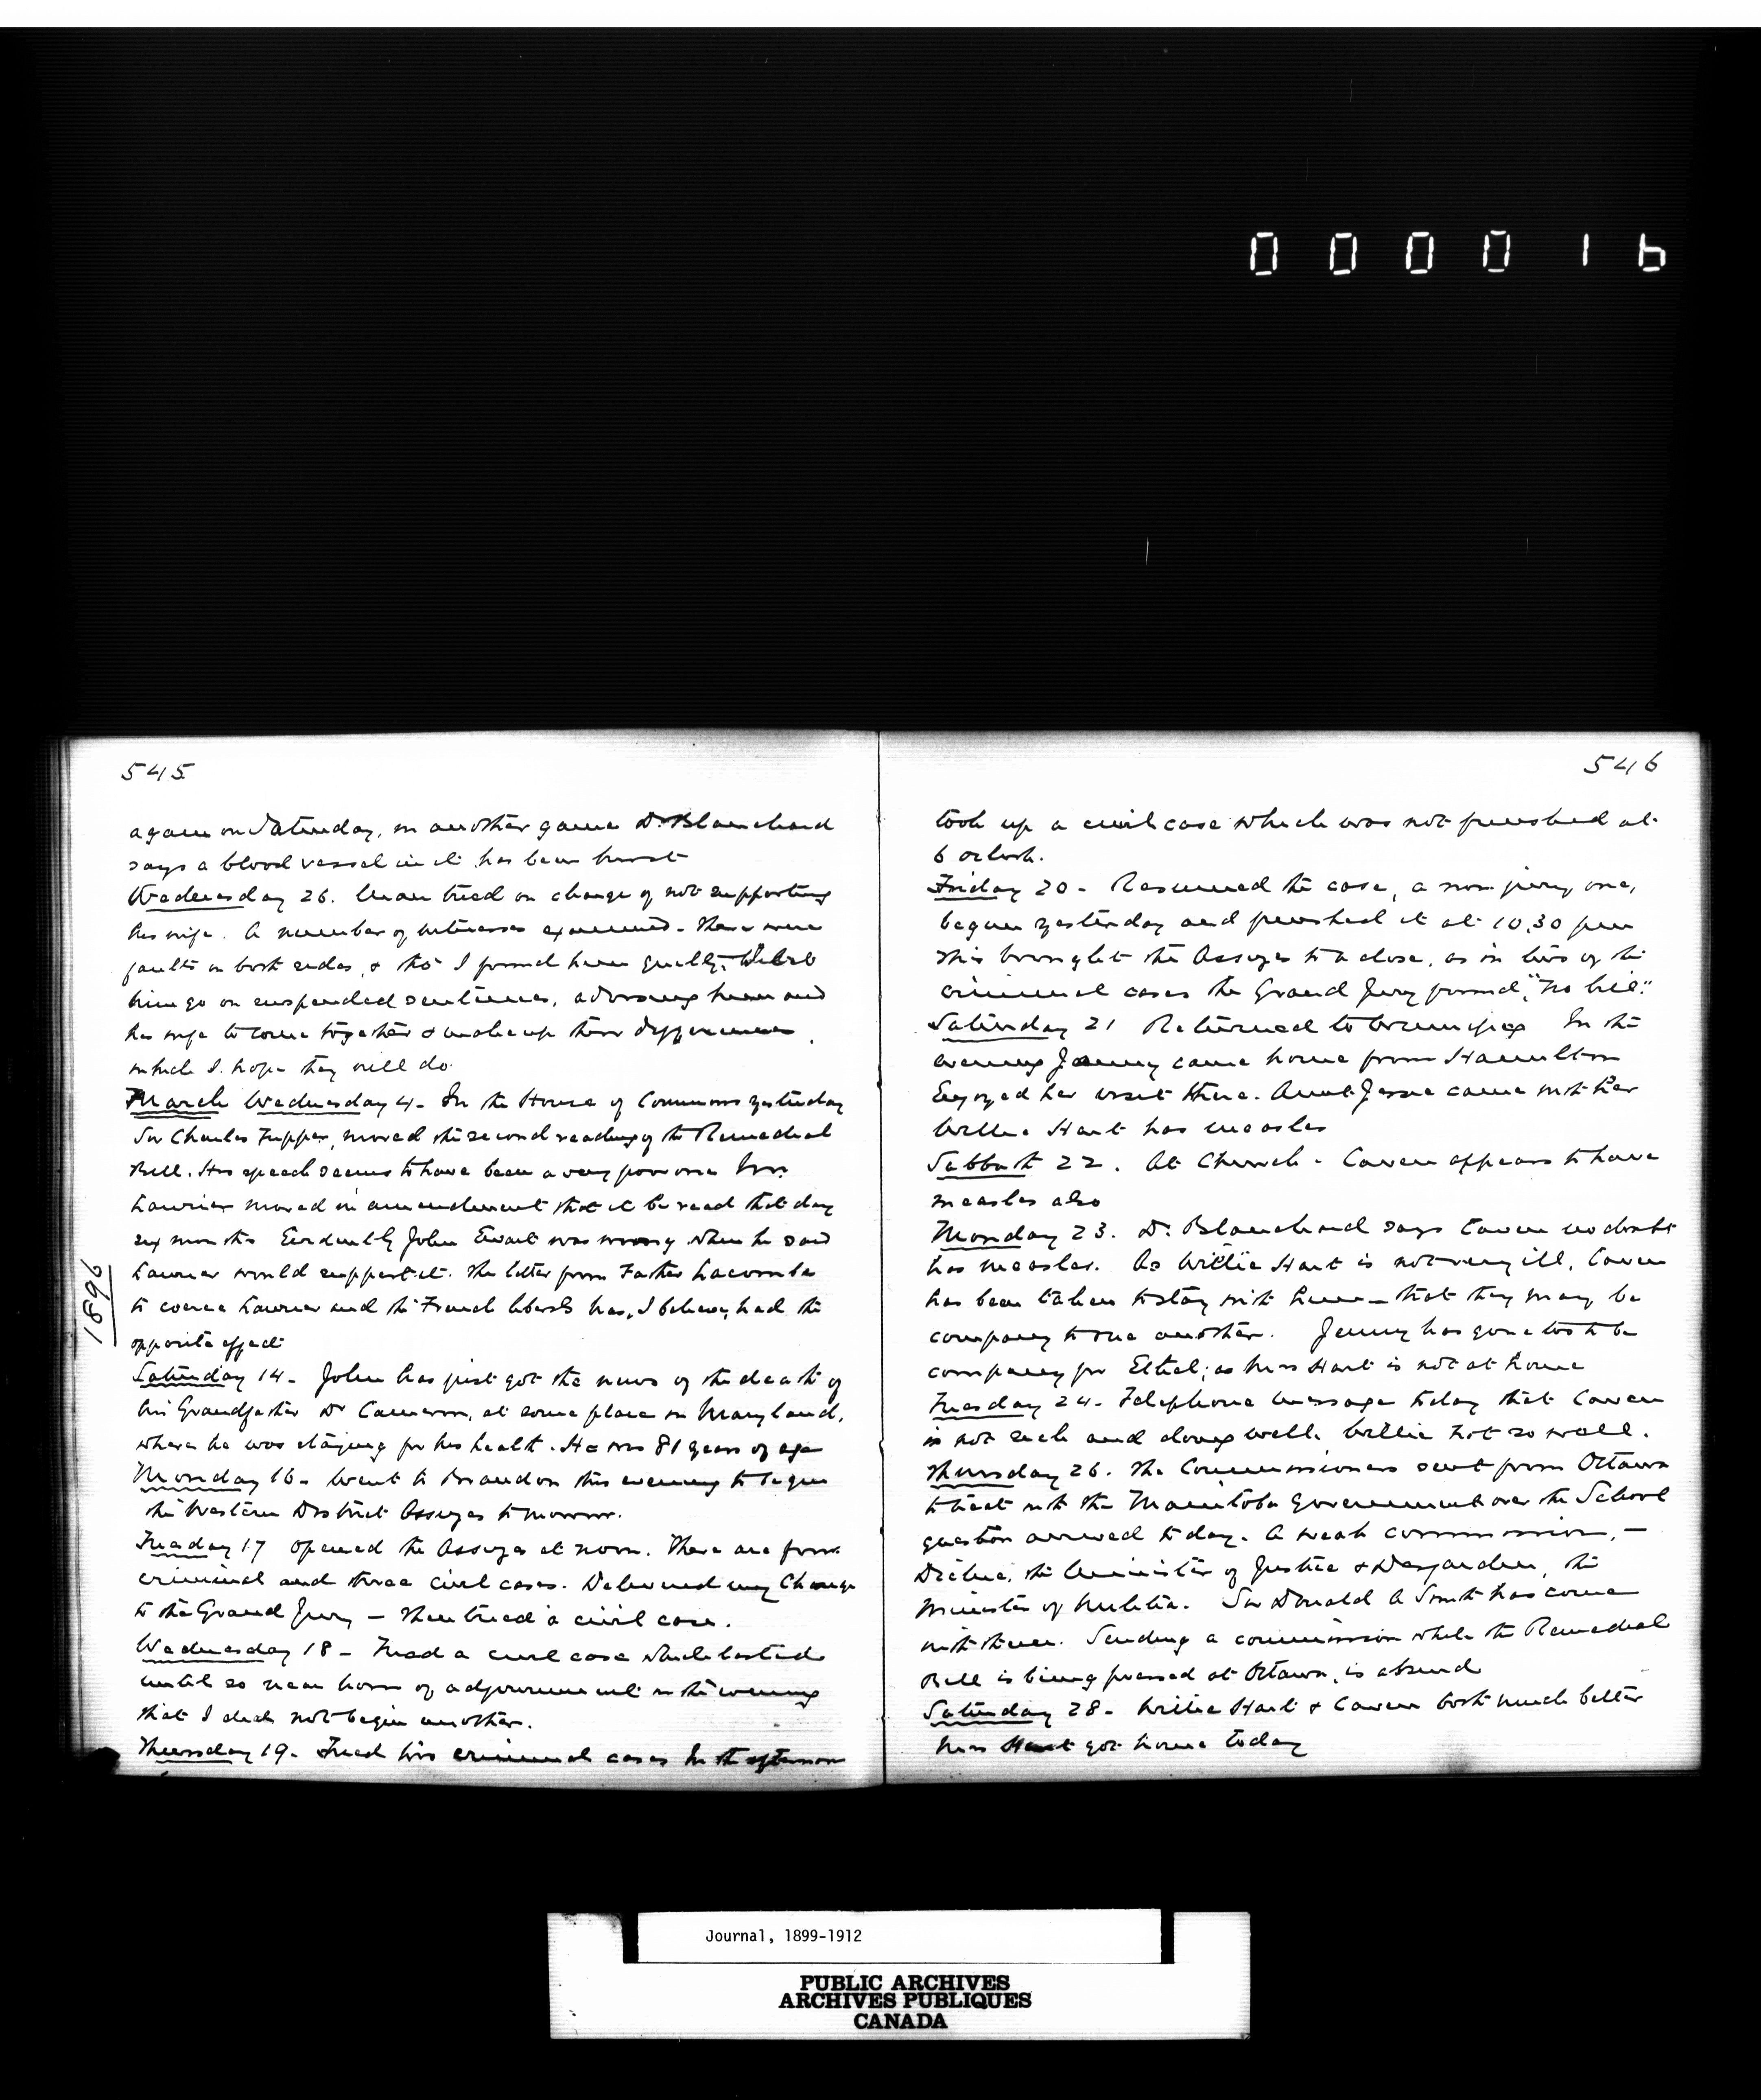 0 0 0 0 1 6
545
again on Saturday, in another game Dr. Blanchard
says a blood vessel in it has been burst
Wednesday 26. Man tried on charge of not supporting
his wife. A number of witnesses examined. There were
faults on both sides, & tho' I found him guilty,
him go on suspended sentence, advising him and
his wife to come together & make up their differences,
which I hope they will do.
March Wednesday 4. In the House of Commons yesterday
Sir Charles Tupper, moved the second reading of the Remedial
Bill. His speech seems to have been a very poor one Mr.
Laurier moved in amendment that it be read that day
six months Evidently John Ewart was wrong when he said
Laurier would support it. The letter from Father Lacombe
to coerce Laurier and the French liberals has, I believe, had the
opposite effect
1896
Saturday 14. John has just got the news of the death of
his Grandfather Dr Cameron, at some place in Maryland,
where he was staying for his health. He was 81 years of age
Monday 16. Went to Brandon this evening to begin
the Western District Assizes tomorrow.
Tuesday 17 Opened the Assizes at noon. There are four
criminal and three civil cases. Delivered my Charge
to the Grand Jury — Then tried a civil case.
Wednesday 18 - Tried a civil case which lasted
until so near hour of adjournment in the evening
that I did not begin another.
Thursday 19. Tried two criminal cases In the afternoon
546
took up a civil case which was not finished at
6 oclock.
Friday 20 - Resumed the case, a non jury one,
begun yesterday and finished it at 10.30 pm
This brought the Assizes to a close, as in two of the
criminal cases the Grand Jury found, "no bill."
Saturday 21 Returned to Winnipeg In the
evening Jenny came home from Hamilton
Enjoyed her visit there. Aunt Jessie came with her
Willie Hart has measles
Sabbath 22. At Church - Caven appears to have
measles also
Monday 23. Dr. Blanchard says Caven no doubt
has measles. As Willie Hart is not very ill, Caven
has been taken to stay with him — that they may be
company to one another. Jenny has gone too to be
company for Ethel; as Mrs Hart is not at home
Tuesday 24. Telephone message today that Caven
is not sick and doing well. Willie not so well.
Thursday 26. The Commissioners sent from Ottawa
to treat with the Manitoba Government over the School
question arrived today. A weak commission, —
Dickie, the Minister of Justice & Desjardins, the
Minister of Militia. Sir Donald A Smith has come
with them. Sending a commission while the Remedial
Bill is being pressed at Ottawa, is absurd
Saturday 28 - Willie Hart & Caven both much better
Mrs Hart got home today
Journal, 1899-1912
PUBLIC ARCHIVES
ARCHIVES PUBLIQUES
CANADA